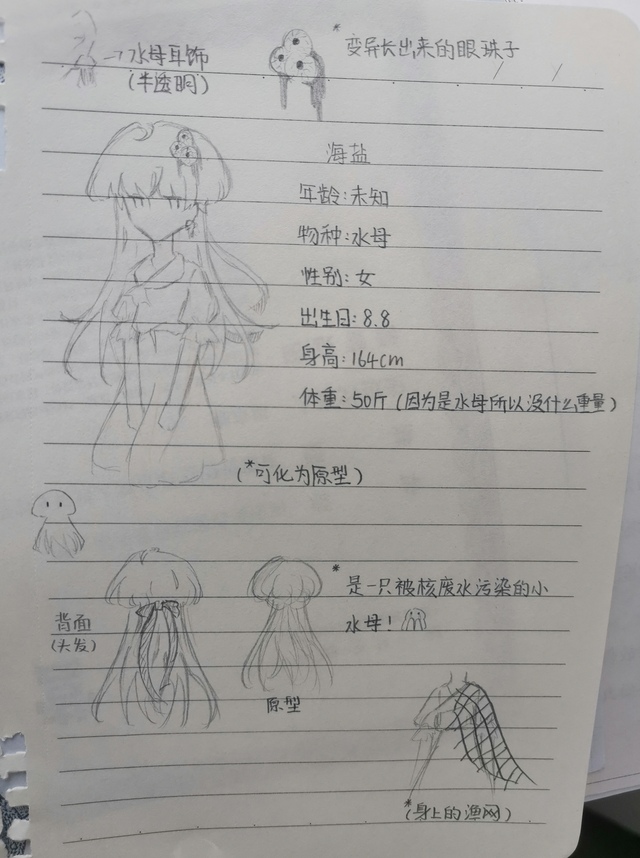 →水母耳饰
(半透明)
*变异长出来的眼珠子
海盐
年龄:未知
物种:水母
性别:女
出生日:8.8
身高:164cm
体重:50斤(因为是水母所以没什么重量)
(*可化为原型)
*是一只被核废水污染的小
水母!
背面
(头发)
原型
*(身上的渔网)